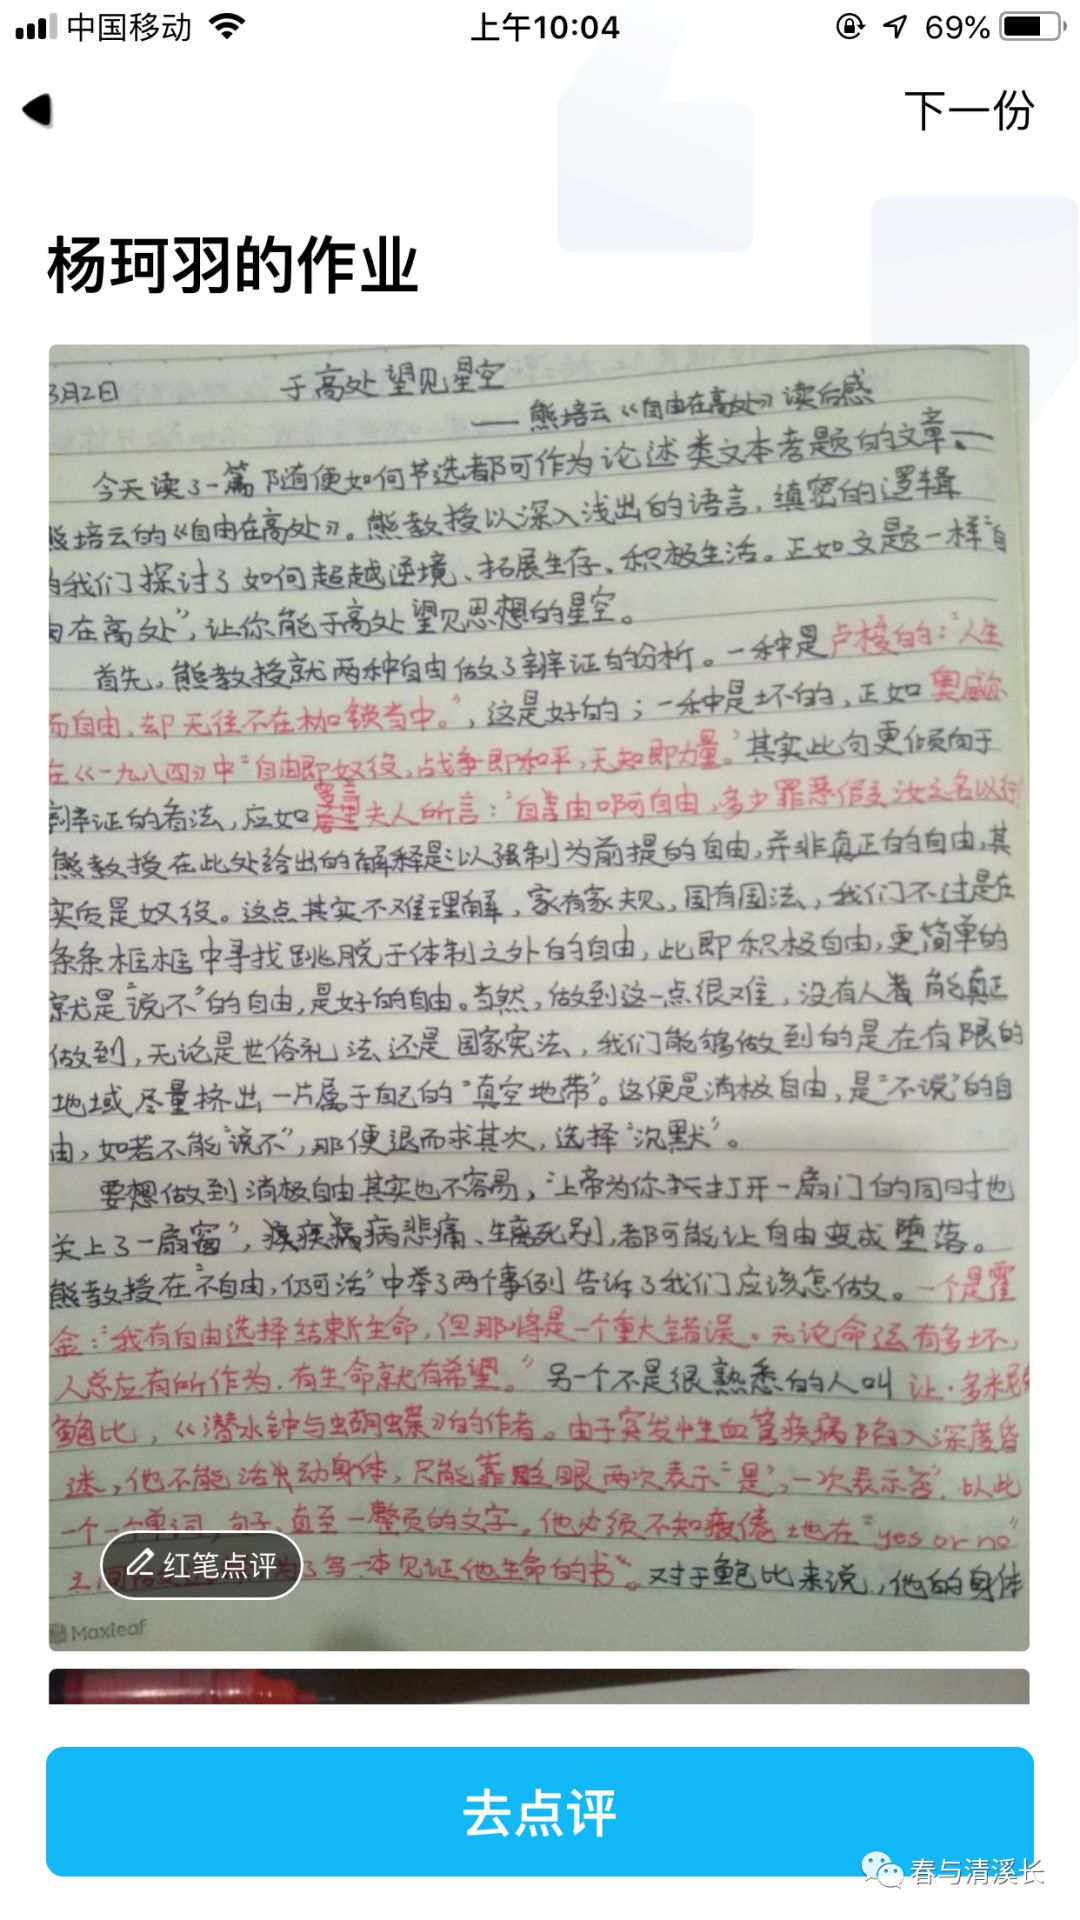 中国移动 上午10:04 69%
下一份
杨珂羽的作业
3月2日 于高处望见星空
——熊培云《自由在高处》读后感
今天读了一篇随便如何节选都可作为论述类文本考题的文章。——
熊培云的《自由在高处》。熊教授以深入浅出的语言，缜密的逻辑
为我们探讨了如何超越逆境、拓展生存、积极生活。正如文题一样"自
由在高处"，让你能于高处望见思想的星空。
首先，熊教授就两种自由做了辨证的分析。一种是卢梭的："人生
而自由，却无往不在枷锁当中。"，这是好的；一种是坏的，正如奥威尔
在《一九八四》中"自由即奴役，战争即和平，无知即力量。"其实此句更倾向于
辨证的看法，应如罗兰夫人所言："自由啊自由，多少罪恶假汝之名以行
熊教授在此处给出的解释是：以强制为前提的自由，并非真正的自由，其
实质是奴役。这点其实不难理解，家有家规，国有国法，我们不过是在
条条框框中寻找跳脱于体制之外的自由，此即积极自由，更简单的
就是"说不"的自由，是好的自由。当然，做到这一点很难，没有人能真正
做到，无论是世俗礼法还是国家宪法，我们能够做到的是在有限的
地域尽量挤出一片属于自己的"真空地带"。这便是消极自由，是"不说"的自
由，如若不能"说不"，那便退而求其次，选择"沉默"。
要想做到消极自由其实也不容易，"上帝为你打开一扇门的同时也
关上了一扇窗"，疾病悲痛、生离死别，都可能让自由变成堕落。
熊教授在"不自由，仍可活"中举了两个事例告诉了我们应该怎做。一个是霍
金："我有自由选择结束生命，但那将是一个重大错误。无论命运有多坏，
人总应有所作为，有生命就有希望。"另一个不是很熟悉的人叫让·多米尼克
鲍比，《潜水钟与蝴蝶》的作者。由于突发性血管疾病陷入深度昏
迷，他不能活动身体，只能靠眨眼两次表示"是"，一次表示"否"，以此
一个一个单词，句子，直至一整页的文字。他必须不知疲倦地在"yes or no"
之间 了写一本见证他生命的书"。对于鲍比来说，他的身体
红笔点评
Maxleaf
去点评
春与清溪长